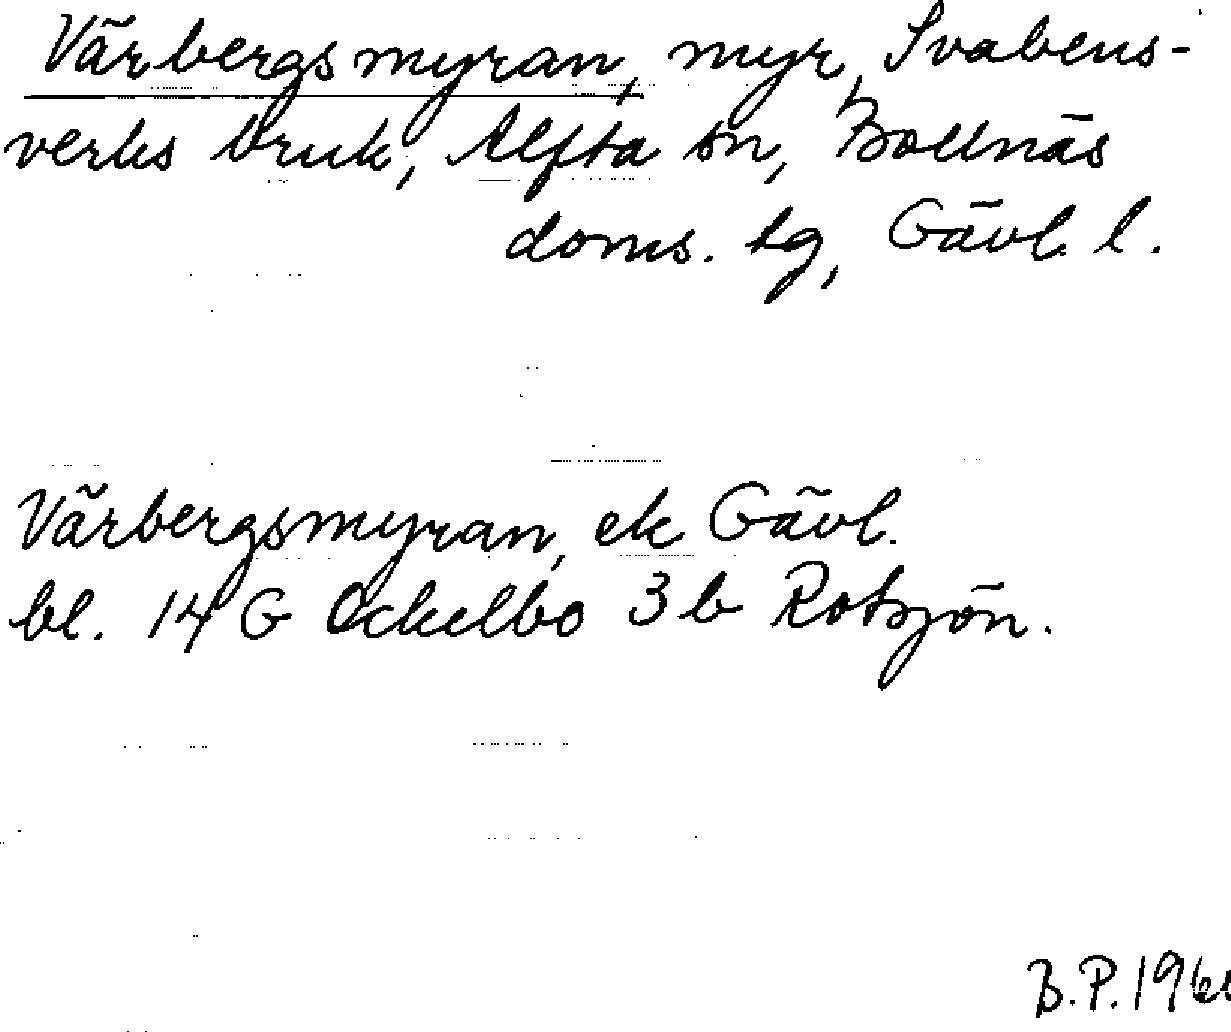 Värbergsmyran, myr, Svabens-
verks bruk, Alfta sn, Bollnäs
doms. tg, Gävl. l.
Värbergsmyran, ek Gävl.
bl. 14 G Ockelbo 3 b Rotsjön.
B.P.